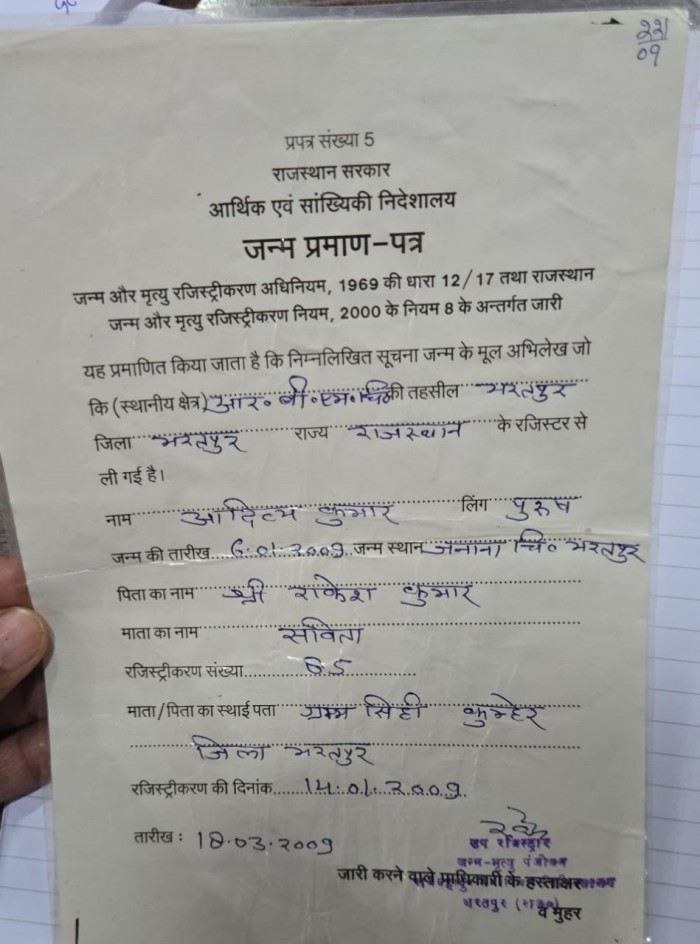 221
09
प्रपत्र संख्या 5
राजस्थान सरकार
आर्थिक एवं सांख्यिकी निदेशालय
जन्म प्रमाण-पत्र
जन्म और मृत्यु रजिस्ट्रीकरण अधिनियम, 1969 की धारा 12/17 तथा राजस्थान
जन्म और मृत्यु रजिस्ट्रीकरण नियम, 2000 के नियम 8 के अन्तर्गत जारी
यह प्रमाणित किया जाता है कि निम्नलिखित सूचना जन्म के मूल अभिलेख जो
कि (स्थानीय क्षेत्र) आर॰ बी॰ एम॰ चि॰ की तहसील भरतपुर
जिला भरतपुर राज्य राजस्थान के रजिस्टर से
ली गई है।
नाम आदित्य कुमार लिंग पुरुष
जन्म की तारीख 6.01.2009 जन्म स्थान जनाना चि॰ भरतपुर
पिता का नाम श्री राकेश कुमार
माता का नाम सविता
रजिस्ट्रीकरण संख्या 65
माता/पिता का स्थाई पता ग्राम सिही कुम्हेर
जिला भरतपुर
रजिस्ट्रीकरण की दिनांक 14.01.2009
तारीख : 18.03.2009
उप रजिस्ट्रार
जन्म-मृत्यु पंजीयन
जारी करने वाले प्राधिकारी के हस्ताक्षर
भरतपुर (राज॰)
व मुहर